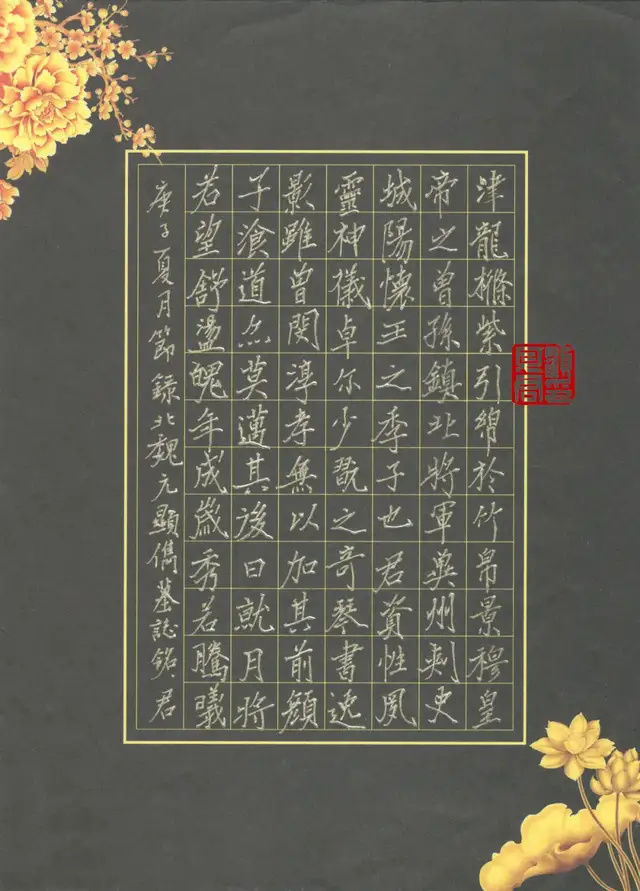 津龍樤紫引綿於竹帛景穆皇
帝之曾孫鎮北將軍冀州刺史
城陽懷王之季子也君資性夙
靈神儀卓尒少翫之奇琴書逸
影雖曾閔淳孝無以加其前顏
子飡道亦莫邁其後日就月將
若望舒盪魄年成歲秀若騰曦
庚子夏月節錄北魏元顯儁墓誌銘君